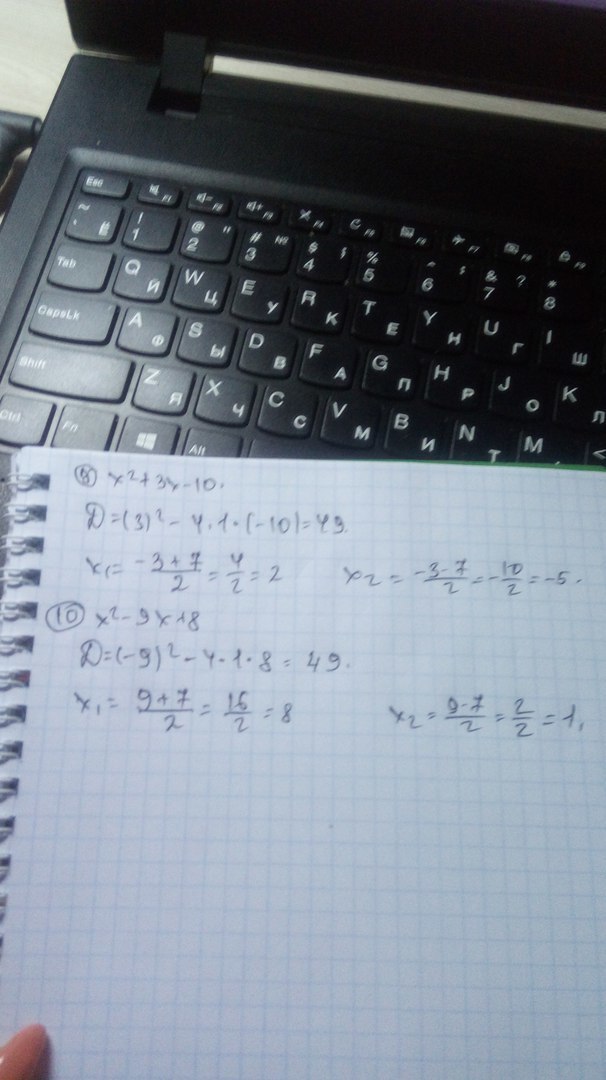 Esc F1 F2 F3 F4 F5 F6 F7 F8 F9
~ ` Ё ! 1 @ " 2 # № 3 $ ; 4 % 5 ^ : 6 & ? 7 * 8
Tab Q Й W Ц E У R К T Е Y Н U Г I Ш
CapsLk A Ф S Ы D В F А G П H Р J О K Л
Shift Z Я X Ч C С V М B И N Т M <
Ctrl Fn Alt
⑨ x²+3x-10.
D=(3)²-4·1·(-10)=49.
x₁=\frac{-3+7}{2}=\frac{4}{2}=2 x₂=\frac{-3-7}{2}=-\frac{10}{2}=-5.
⑩ x²-9x+8
D=(-9)²-4·1·8=49.
x₁=\frac{9+7}{2}=\frac{16}{2}=8 x₂=\frac{9-7}{2}=\frac{2}{2}=1,